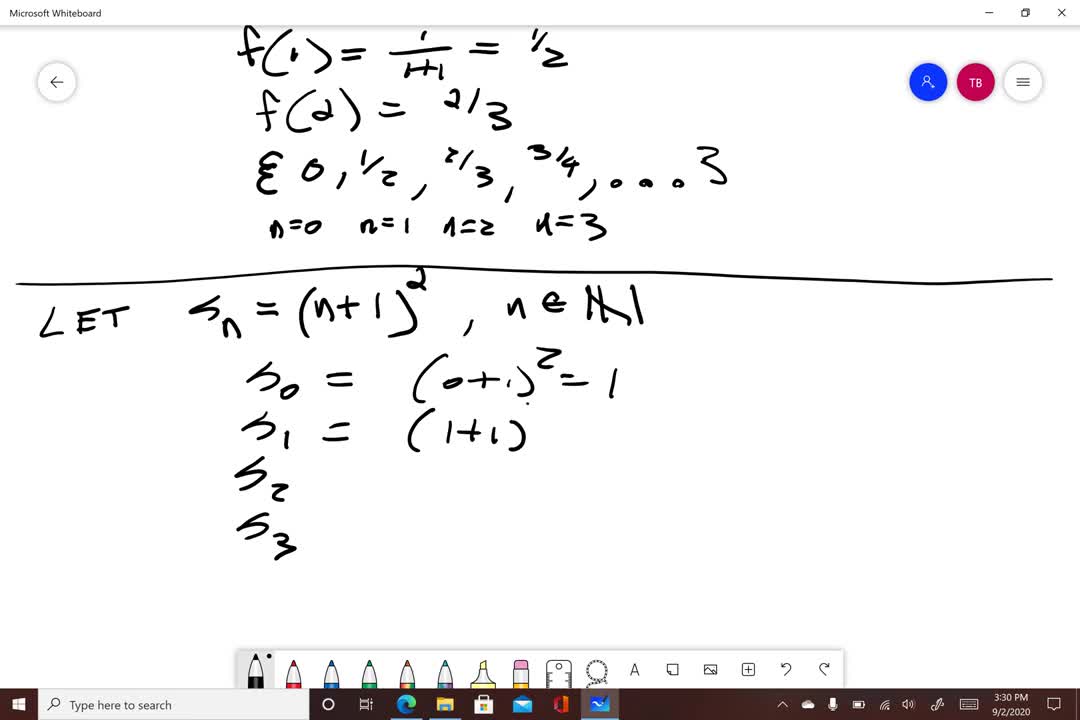 Microsoft Whiteboard
f(1) = 1/(1+1) = 1/2
TB
f(2) = 2/3
{ 0, 1/2, 2/3, 3/4, ... }
n=0 n=1 n=2 n=3
LET s_n = (n+1)^2, n ∈ ℕ
s_0 = (0+1)^2 = 1
s_1 = (1+1)
s_2
s_3
A
Type here to search
3:30 PM
9/2/2020